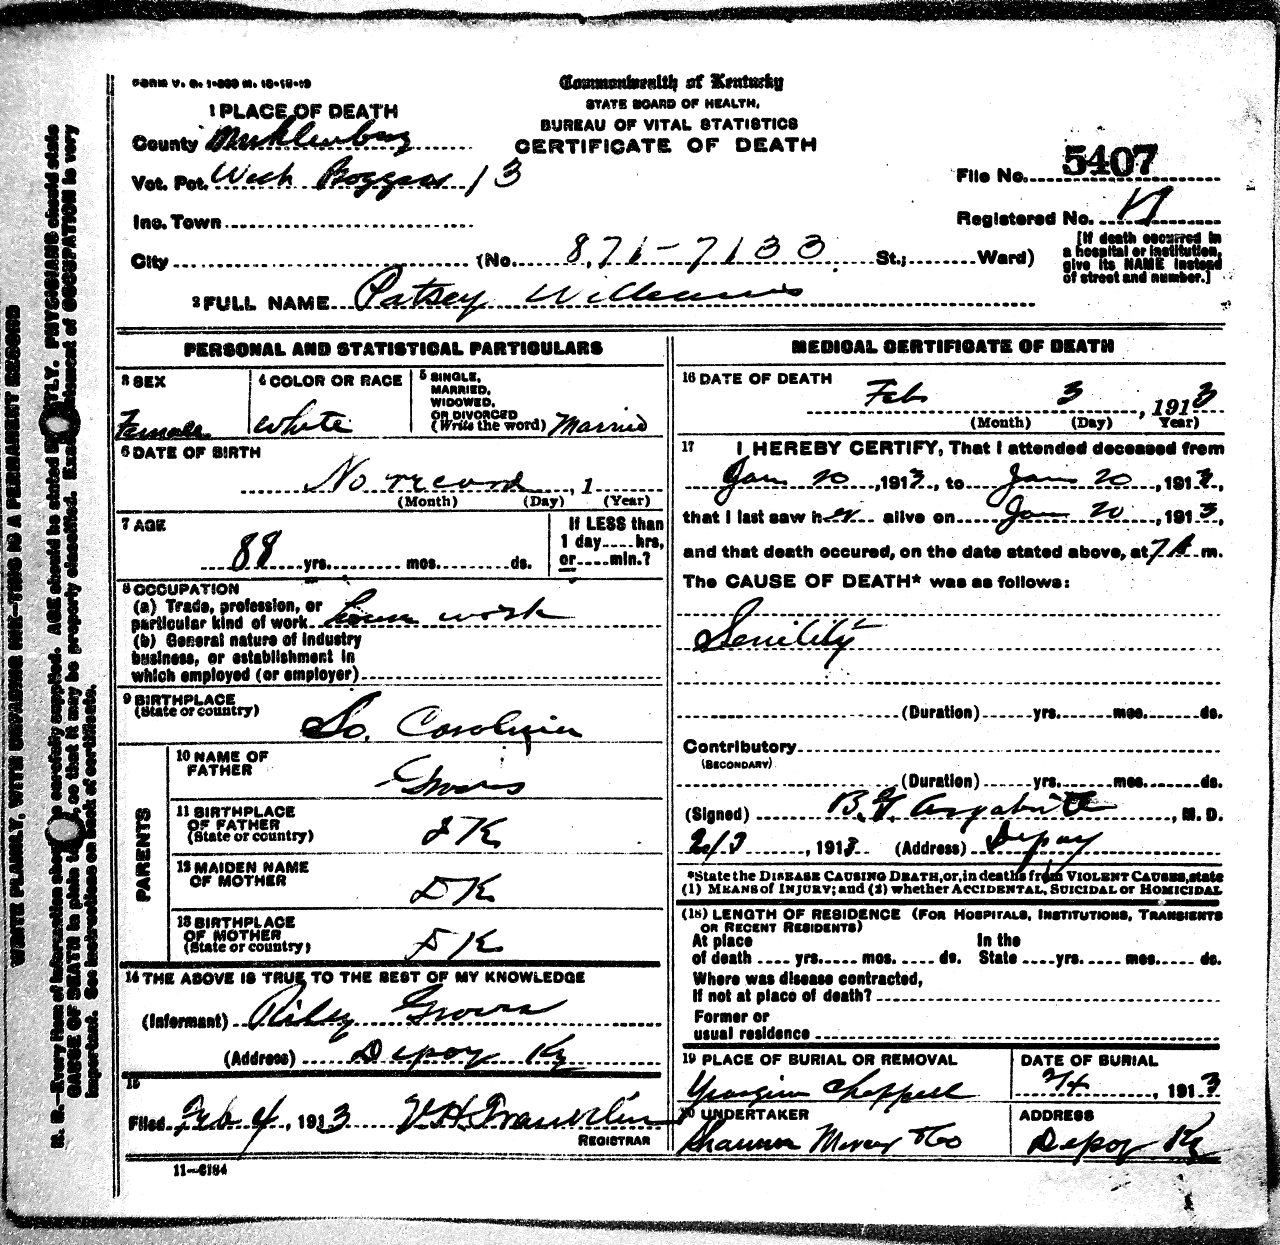 FORM V. S. 1-350 M. 10-18-19
Commonwealth of Kentucky
STATE BOARD OF HEALTH,
BUREAU OF VITAL STATISTICS
CERTIFICATE OF DEATH
1 PLACE OF DEATH
County Muhlenburg
Vot. Pct. West Boggess 13
Inc. Town
City (No. 871-7133 St.; Ward)
File No. 5407
Registered No.
[If death occurred in
a hospital or institution,
give its NAME instead
of street and number.]
2 FULL NAME Patsey Williams
PERSONAL AND STATISTICAL PARTICULARS
3 SEX
Female
4 COLOR OR RACE
White
5 SINGLE,
MARRIED,
WIDOWED,
OR DIVORCED
(Write the word) Married
6 DATE OF BIRTH
No record, 1
(Month) (Day) (Year)
7 AGE
88 yrs. mos. ds.
If LESS than
1 day hrs,
or min.?
8 OCCUPATION
(a) Trade, profession, or
particular kind of work house work
(b) General nature of industry
business, or establishment in
which employed (or employer)
9 BIRTHPLACE
(State or country)
So. Carolina
PARENTS
10 NAME OF
FATHER
Groves
11 BIRTHPLACE
OF FATHER
(State or country)
DK
12 MAIDEN NAME
OF MOTHER
DK
13 BIRTHPLACE
OF MOTHER
(State or country)
DK
14 THE ABOVE IS TRUE TO THE BEST OF MY KNOWLEDGE
(Informant) Riley Groves
(Address) Depoy Ky
15
Filed Feb 4, 1913 V.H. Franklin
REGISTRAR
11-6184
MEDICAL CERTIFICATE OF DEATH
16 DATE OF DEATH
Feb 3, 1913
(Month) (Day) Year)
17 I HEREBY CERTIFY, That I attended deceased from
Jan 20, 1913, to Jan 20, 1913,
that I last saw her alive on Jan 20, 1913,
and that death occured, on the date stated above, at 7 A m.
The CAUSE OF DEATH* was as follows:
Senility
(Duration) yrs. mos. ds.
Contributory
(SECONDARY)
(Duration) yrs. mos. ds.
(Signed) B.F. Argabrite, M. D.
2/3, 1913 (Address) Depoy
*State the DISEASE CAUSING DEATH, or, in deaths from VIOLENT CAUSES, state
(1) MEANS of INJURY; and (2) whether ACCIDENTAL, SUICIDAL or HOMICIDAL
(18) LENGTH OF RESIDENCE (FOR HOSPITALS, INSTITUTIONS, TRANSIENTS
OR RECENT RESIDENTS)
At place
of death yrs. mos. ds.
In the
State yrs. mos. ds.
Where was disease contracted,
If not at place of death?
Former or
usual residence
19 PLACE OF BURIAL OR REMOVAL
Chappell
DATE OF BURIAL
2/4, 1913
20 UNDERTAKER
Shannon Mercer & Co
ADDRESS
Depoy Ky
WRITE PLAINLY, WITH UNFADING INK—THIS IS A PERMANENT RECORD
N. B.—Every item of information should be carefully supplied. AGE should be stated EXACTLY. PHYSICIANS should state
CAUSE OF DEATH in plain, so that it may be properly classified. Exact statement of OCCUPATION is very
important. See instructions on back of certificate.